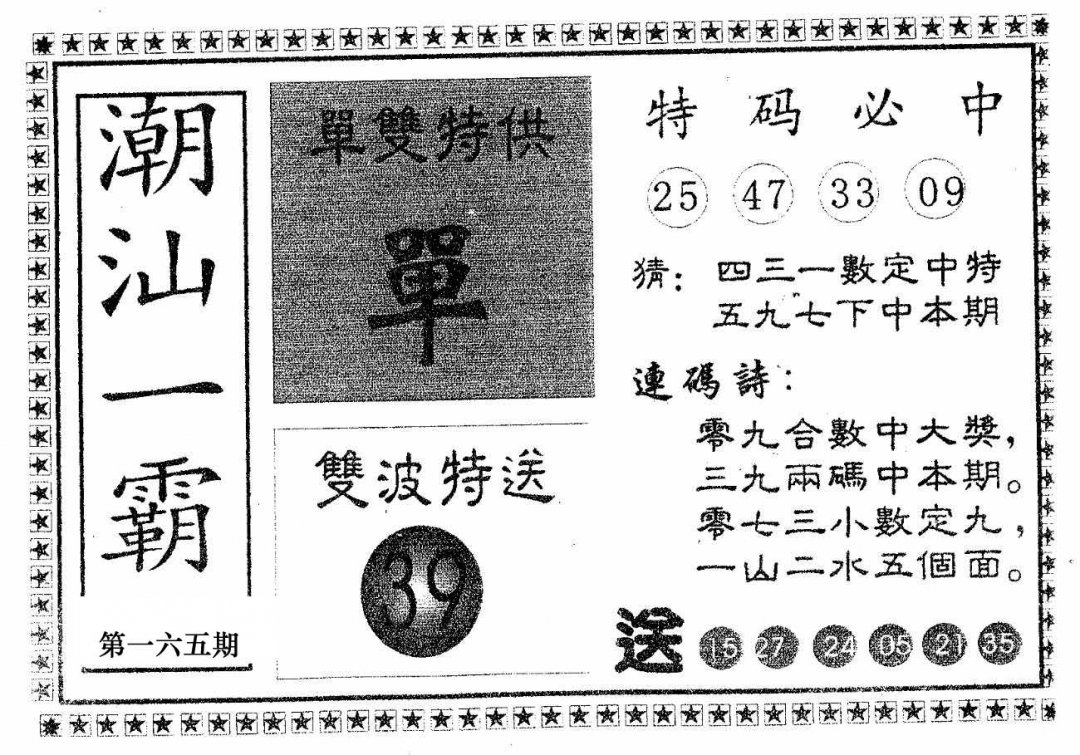 潮汕一霸
第一六五期
單雙特供
單
雙波特送
39
特码必中
25 47 33 09
猜：四三一數定中特
五九七下中本期
連碼詩：
零九合數中大獎，
三九兩碼中本期。
零七三小數定九，
一山二水五個面。
送 15 27 24 05 21 35